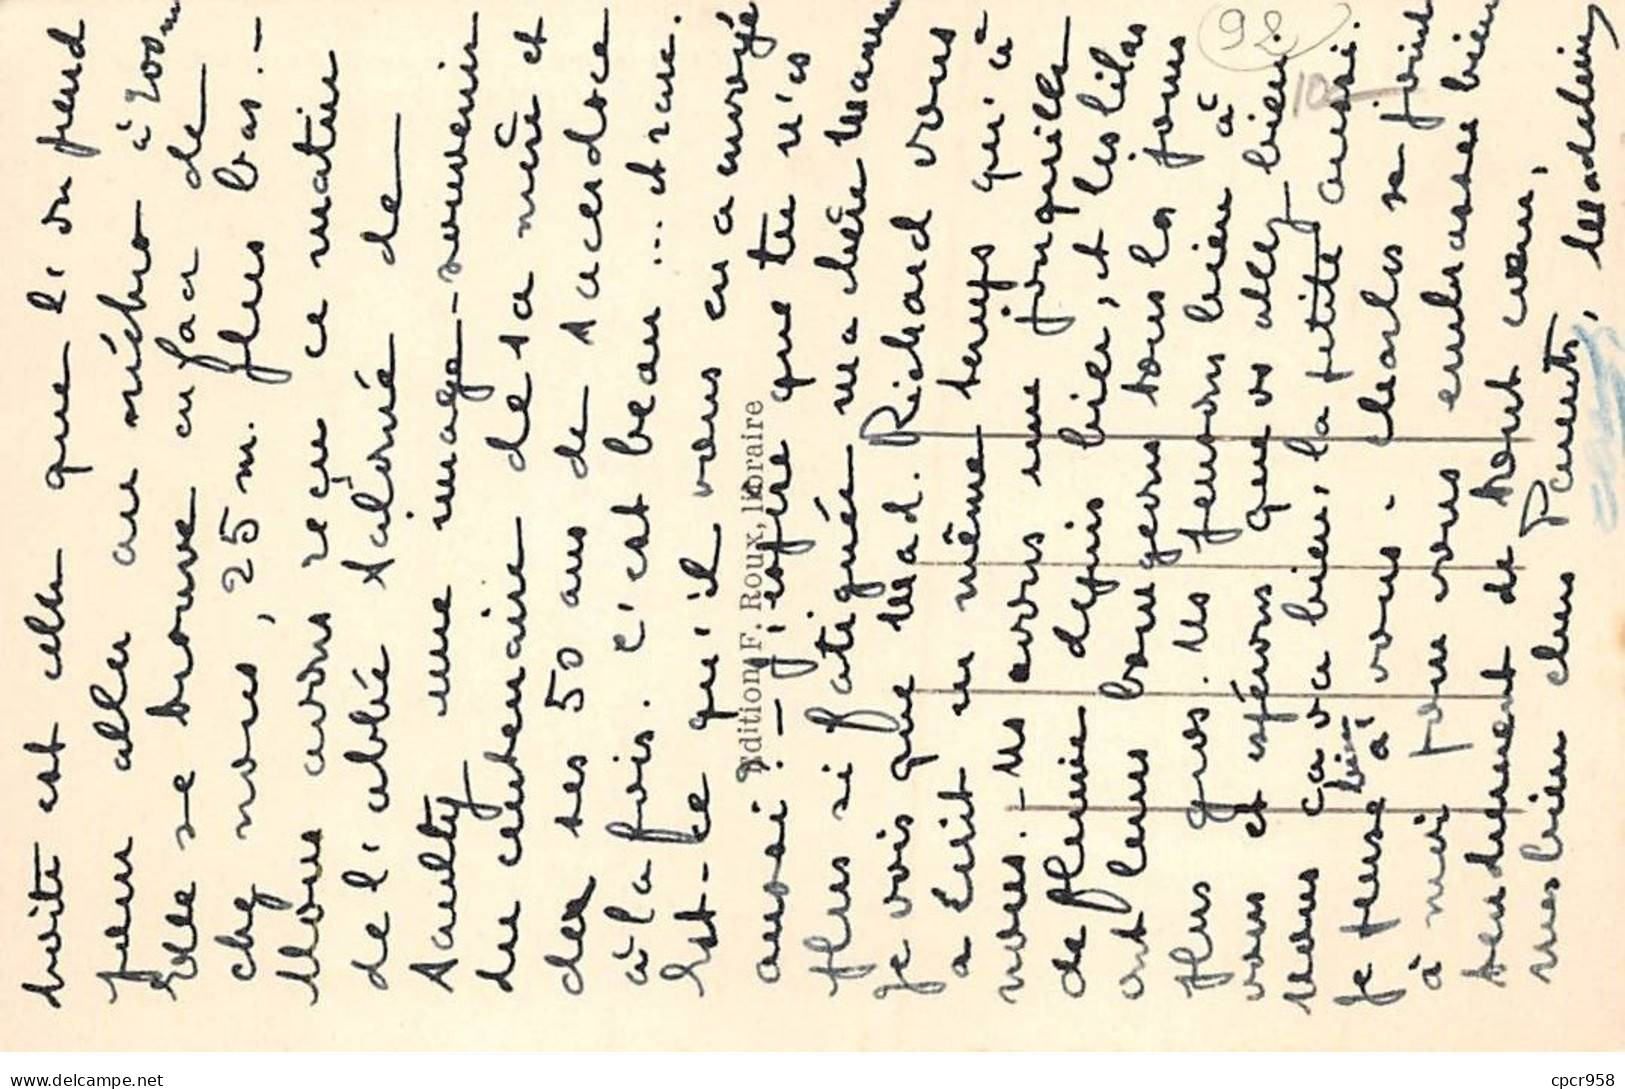 droite est celle que l'on prend
pour aller au métro à 200 m
Elle se trouve en face de
chez nous, 25 m. plus bas. -
Nous avons reçu ce matin
de l'abbé Salomé de
Saulty une image-souvenir
du centenaire de sa mère et
des ses 50 ans de sacerdoce
à la fois. C'est beau ... et rare.
Est-ce qu'il vous en a envoyé
aussi ? - J'espère que tu n'es
plus si fatiguée ma chère Maman
je vois que Mad. Richard vous
a écrit en même temps qu'à
nous. - Us avons une jonquille
de fleurie depuis hier, et les lilas
ont leurs bourgeons tous les jours
plus gros. Us pensons bien à
vous et espérons que vs allez bien.
Nous ça va bien, la petite aussi.
Je pense bien à vous. Charles se joint
à moi pour vous embrasser bien
tendrement de tout cœur,
mes bien chers Parents, Madeleine
Edition F. Roux, libraire
92
10
cpcr958